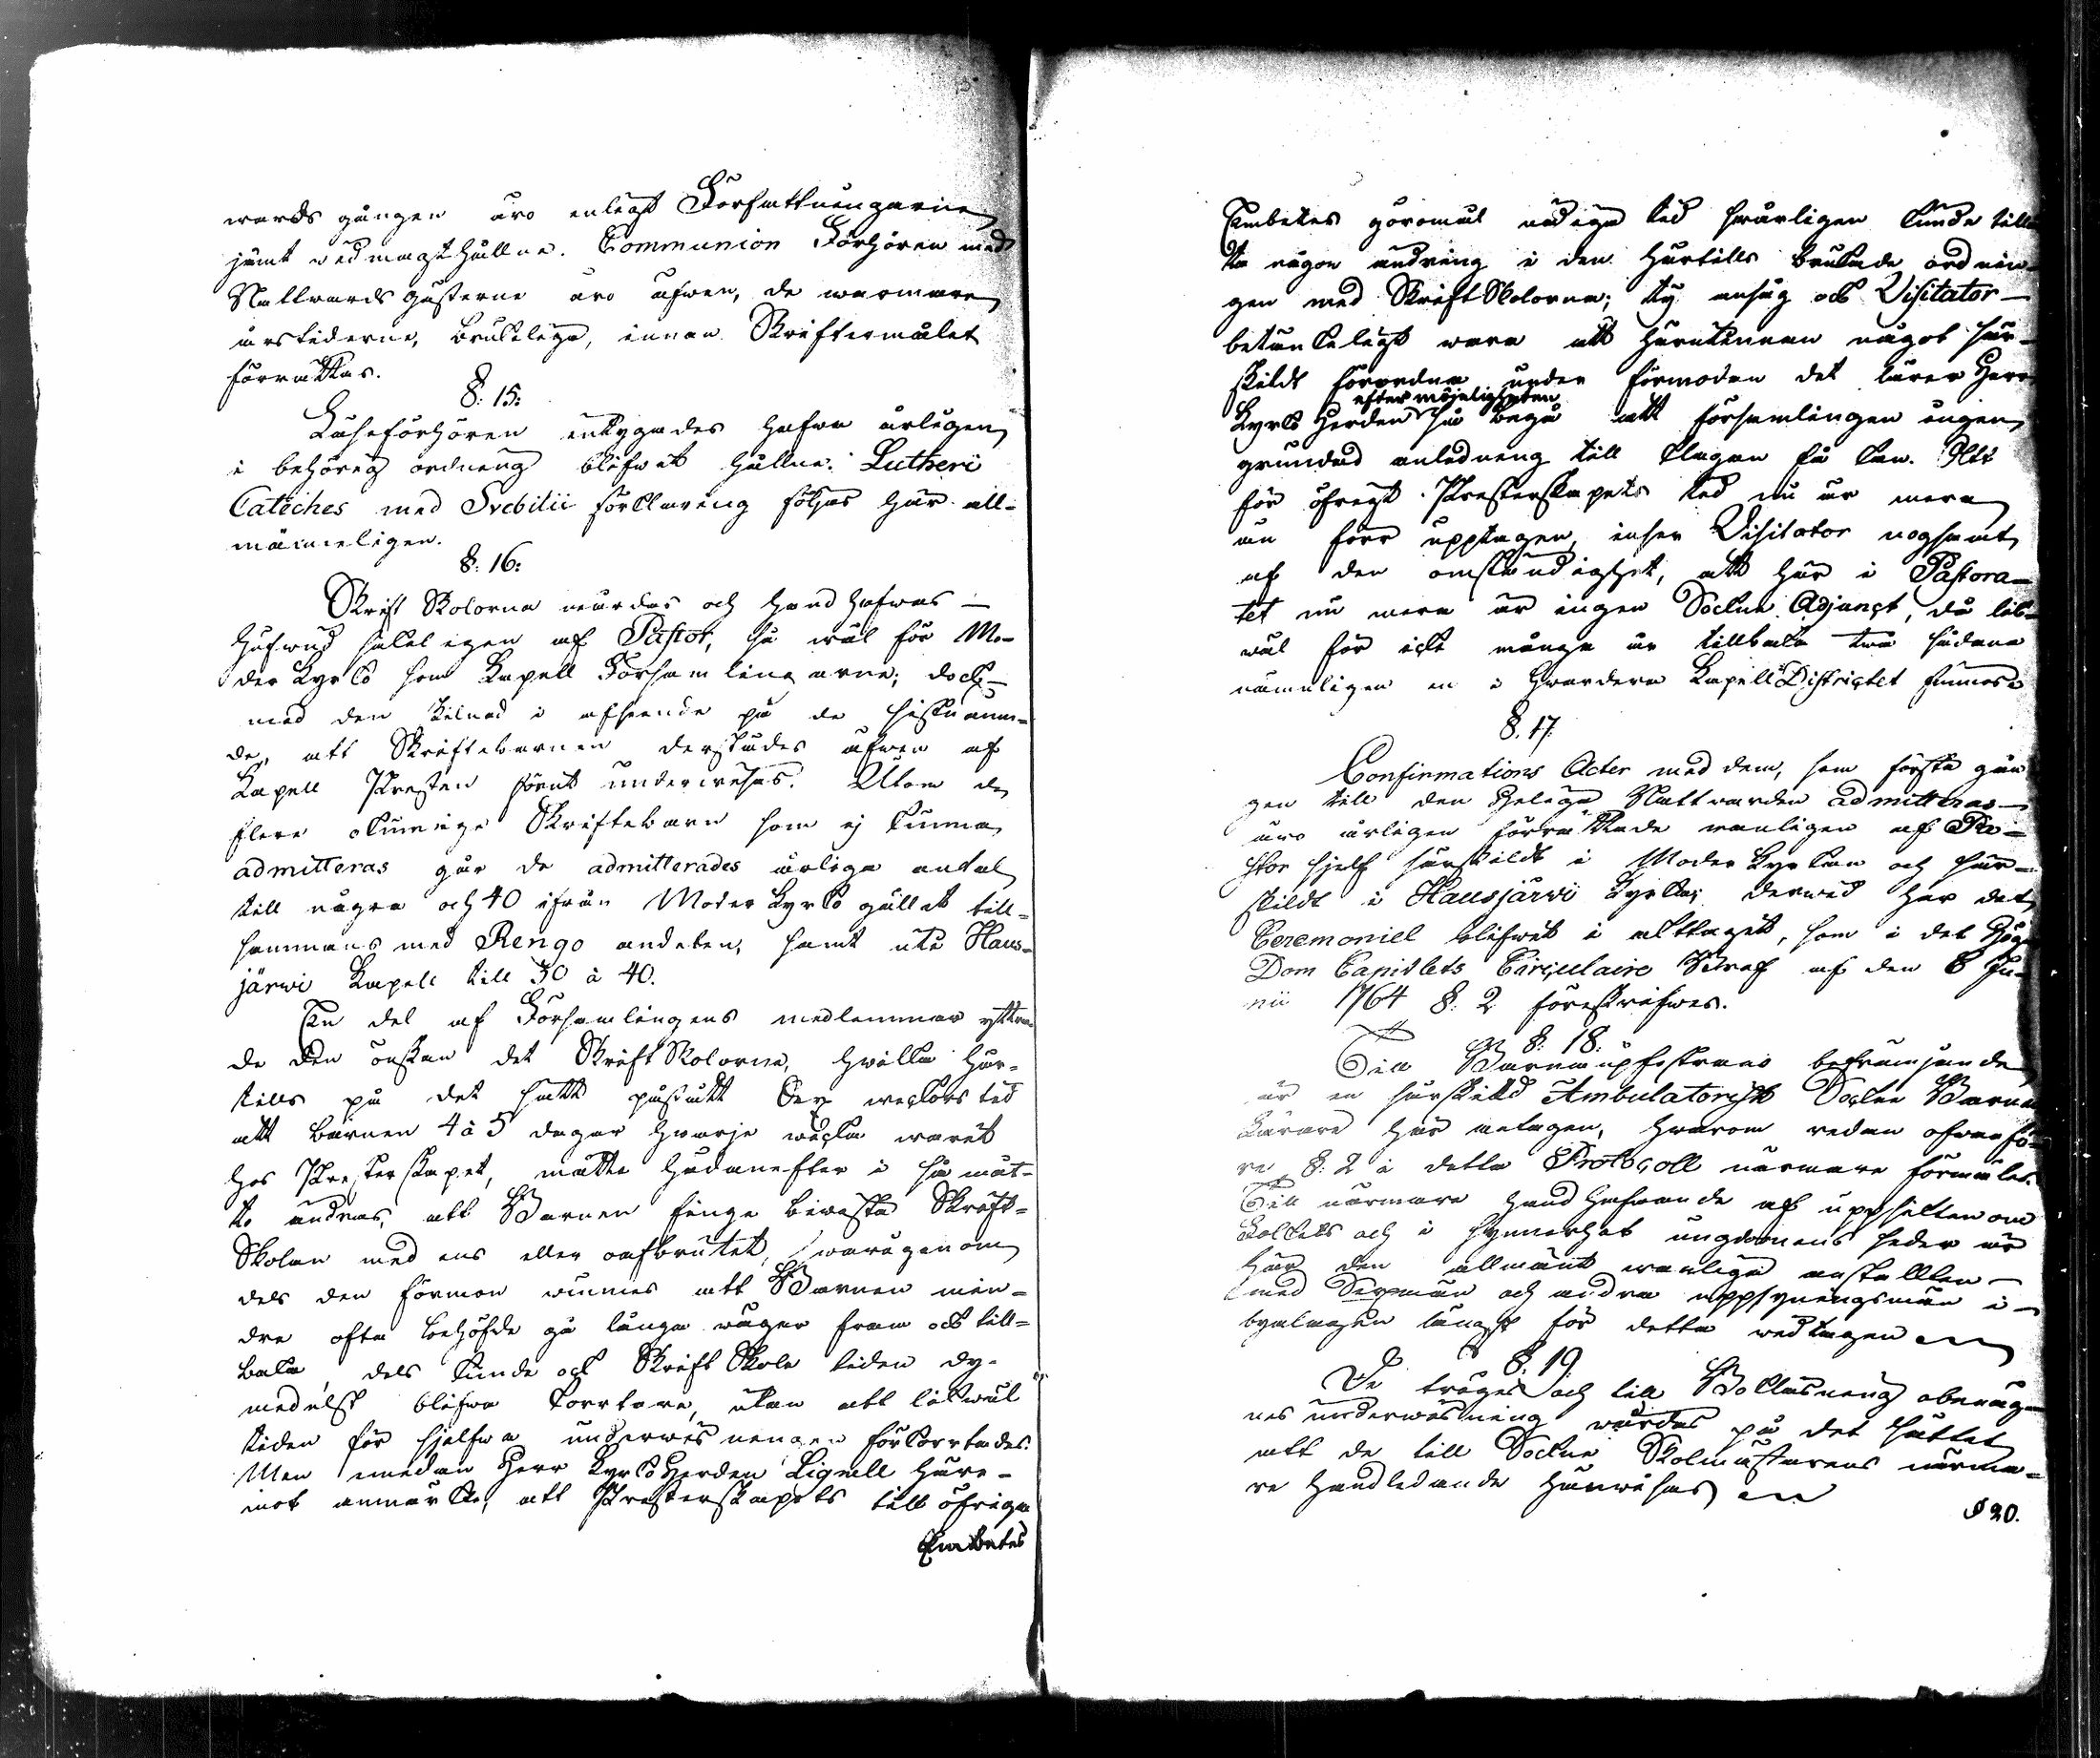 wards gången äro enligt Författningarne
jämt wedmagthållne. Communion Förhören med
Nattwards gästerne äro äfwen, de warmare
årstiderne, bruklige, innan Skriftermålet
förrättas.
§. 15:
Läseförhören intygades hafwa årligen
i behörig ordning blifwit hållne. Lutheri
Catèches med Svebilii förklaring följas här all-
männeligen.
§. 16:
Skrift Skolorna wårdas och handhafwas
hufwud sakeligen af Pastor, så wäl för Mo-
der Kyrko som Kapell Församlingarne; dock
med den skilnad i afseende på de sistnämn-
de, att Skriftebarnen derstädes äfwen af
Kapell Presten förut underwisas. Utom de
flere okunnige Skriftebarn som ej kunna
admitteras går de admitterades årliga antal
till några och 40 ifrån Moder Kyrko gället till-
sammans med Rengo andelen, samt uti Haus-
järwi Kapell till 30 à 40.
En del af Församlingens medlemmar yttra-
de den önskan det Skrift Skolorna, hwilka här-
tills på det sätt påstått Sex weckors tid
att barnen 4 à 5 dagar hwarje wecka warit
hos Presterskapet, måtte hädanefter i så måt-
to ändras, att Barnen finge bewista Skrift-
Skolan med ens eller oafbrutet, warigenom
dels den förmon winnes att Barnen min-
dre ofta behöfde gå långa wägar fram och till-
baka, dels kunde ock Skrift Skole tiden dy-
medelst blifwa kortare, utan att likwäl
tiden för sjelfwa underwisningen förkortades.
Men emedan Herr Kyrkoherden Lignell häre-
mot anmärkte, att Presterskapets till öfriga
Embetes
Embetes göromål ädiga tid swårligen kunde tillå-
ta någon ändring i den härtills brukade ordnin-
gen med Skrift Skolorna; ty ansåg ock Visitator
betänkeligt wara att härutinnan något sär-
skildt förordna under förmodan det lärer Herr
efter möjeligheten
Kyrkoherden så laga att församlingen ingen
grundad anledning till klagan få kan. Att
för öfrigt Presterskapets tid nu är mera
än förr upptagen, inser Visitator nogsamt
af den omständighet, att här i Pastora-
tet nu mera är ingen Sockne Adjunct, då lik-
wäl för icke många år tillbaka twå sådane
nämneligen en i hwardera Kapell Districtet funnos.
§. 17.
Confirmations Acter med dem, som första gån-
gen till den Heliga Nattwarden admitteras
äro årligen förrättade wanligen af Pa-
stor sjelf särskildt i Moder Kyrkan och sär-
skildt i Hausjärwi Kyrka; derwid har det
Ceremoniel blifwit i akttagit, som i det Höga
Dom Capitlets Circulaire Bref af den 6 Ju-
nii 1764 §. 2 föreskrifwes.
§. 18:
Till Barnaupfostrans befrämjande
är en särskild Ambulatorisk Sockne Barna
Lärare här antagen, hwarom redan ofwanfö-
re §: 2 i detta Protocoll närmare förmäles.
Till närmare handhafwande af uppsikten om
folkets och i synnerhet ungdomens seder är
här den allmänt wanliga anstallten
med Sexmän och andra uppsyningsmän i
byalagen längst för detta wedtagen
§. 19
De tröges och till Bokläsning obenäg-
nes underwisning wårdas på det sättet
att de till Sockne Skolmästarens närma-
re handledande hänwisas
§ 20.